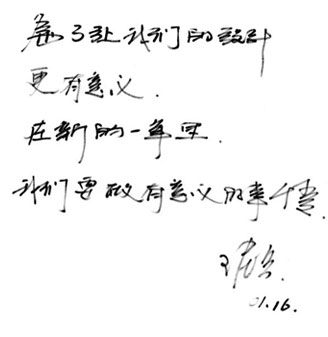 為了让我们的設计
更有意义.
在新的一年里.
我们要做有意义的事情.
1.16.